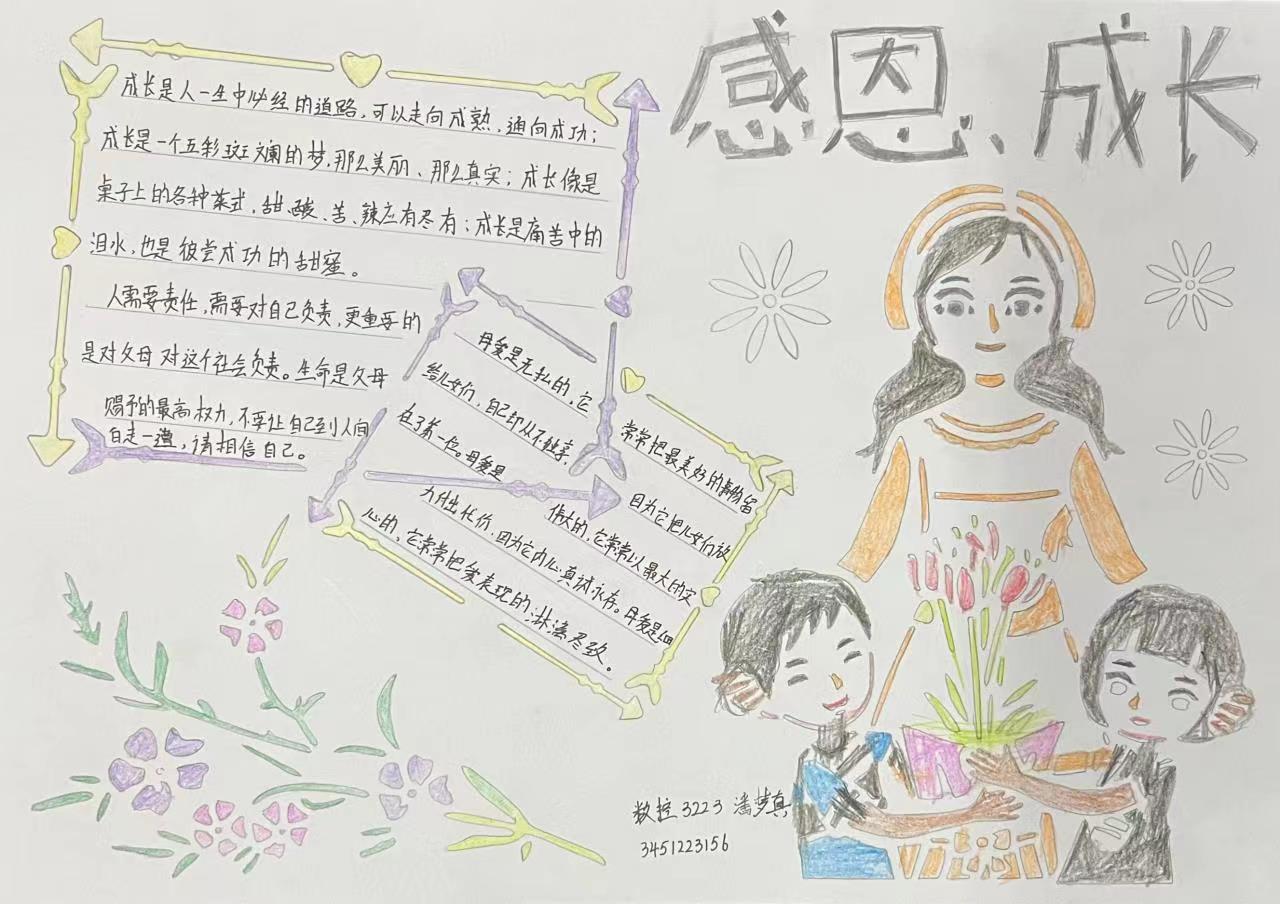 感恩、成长
成长是人一生中必经的道路，可以走向成熟，通向成功；
成长是一个五彩斑斓的梦，那么美丽、那么真实；成长像是
桌子上的各种菜式，甜、酸、苦、辣应有尽有；成长是痛苦中的
泪水，也是彼尝成功的甜蜜。
人需要责任，需要对自己负责，更重要的
是对父母对这个社会负责。生命是父母
赐予的最高权力，不要让自己到人间
白走一遭，请相信自己。
母爱是无私的，它
常常把最美好的事物留
给儿女们，自己却从不独享，
因为它把儿女们放
在了第一位。母爱是
伟大的，它常常以最大的突
力付出代价，因为它内心真诚永存。母爱是细
心的，它常常把爱表现的淋漓尽致。
数控3223 潘梦真
3451223156